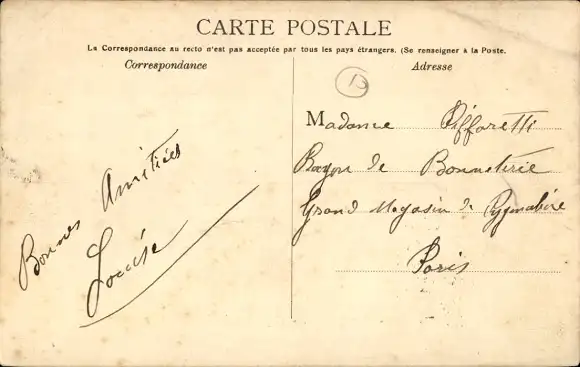 CARTE POSTALE
La Correspondance au recto n'est pas acceptée par tous les pays étrangers. (Se renseigner à la Poste.
Correspondance
Adresse
13
Bonnes Amitiées
Louise
Madame Pifforetti
Rayon de Bonneterie
Grand Magasin de
Paris